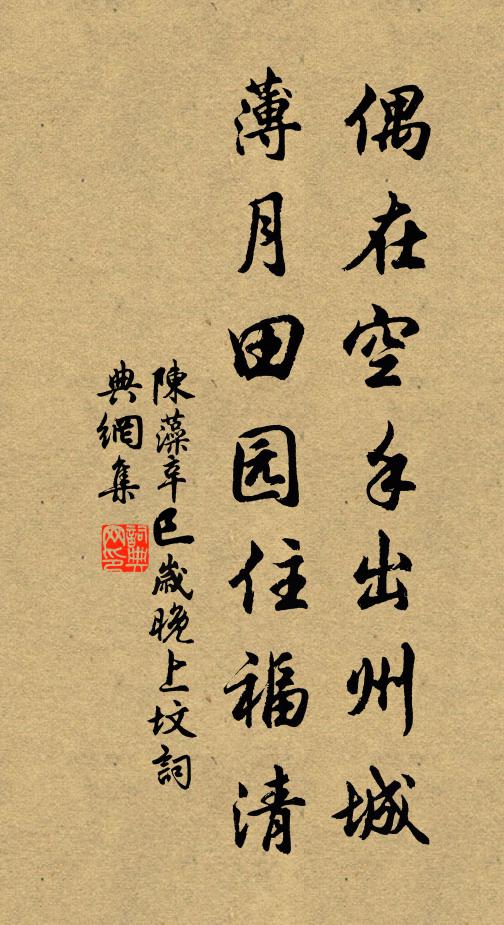 偶在空手出州城
薄月田园住福清
陳藻辛巳歲晚上坟詞
典網集
詞典网印